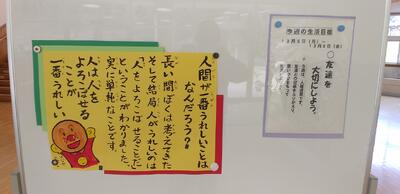 人間が一番うれしいことは
なんだろう?
長い間ぼくは考えてきた
そして結局、人がうれしいのは
「人をよろこばせること」だ
ということがわかりました。
実に単純なことです。
人は人を
よろこばせる
ことが
一番うれしい
今週の生活目標
友達を
大切にしよう。